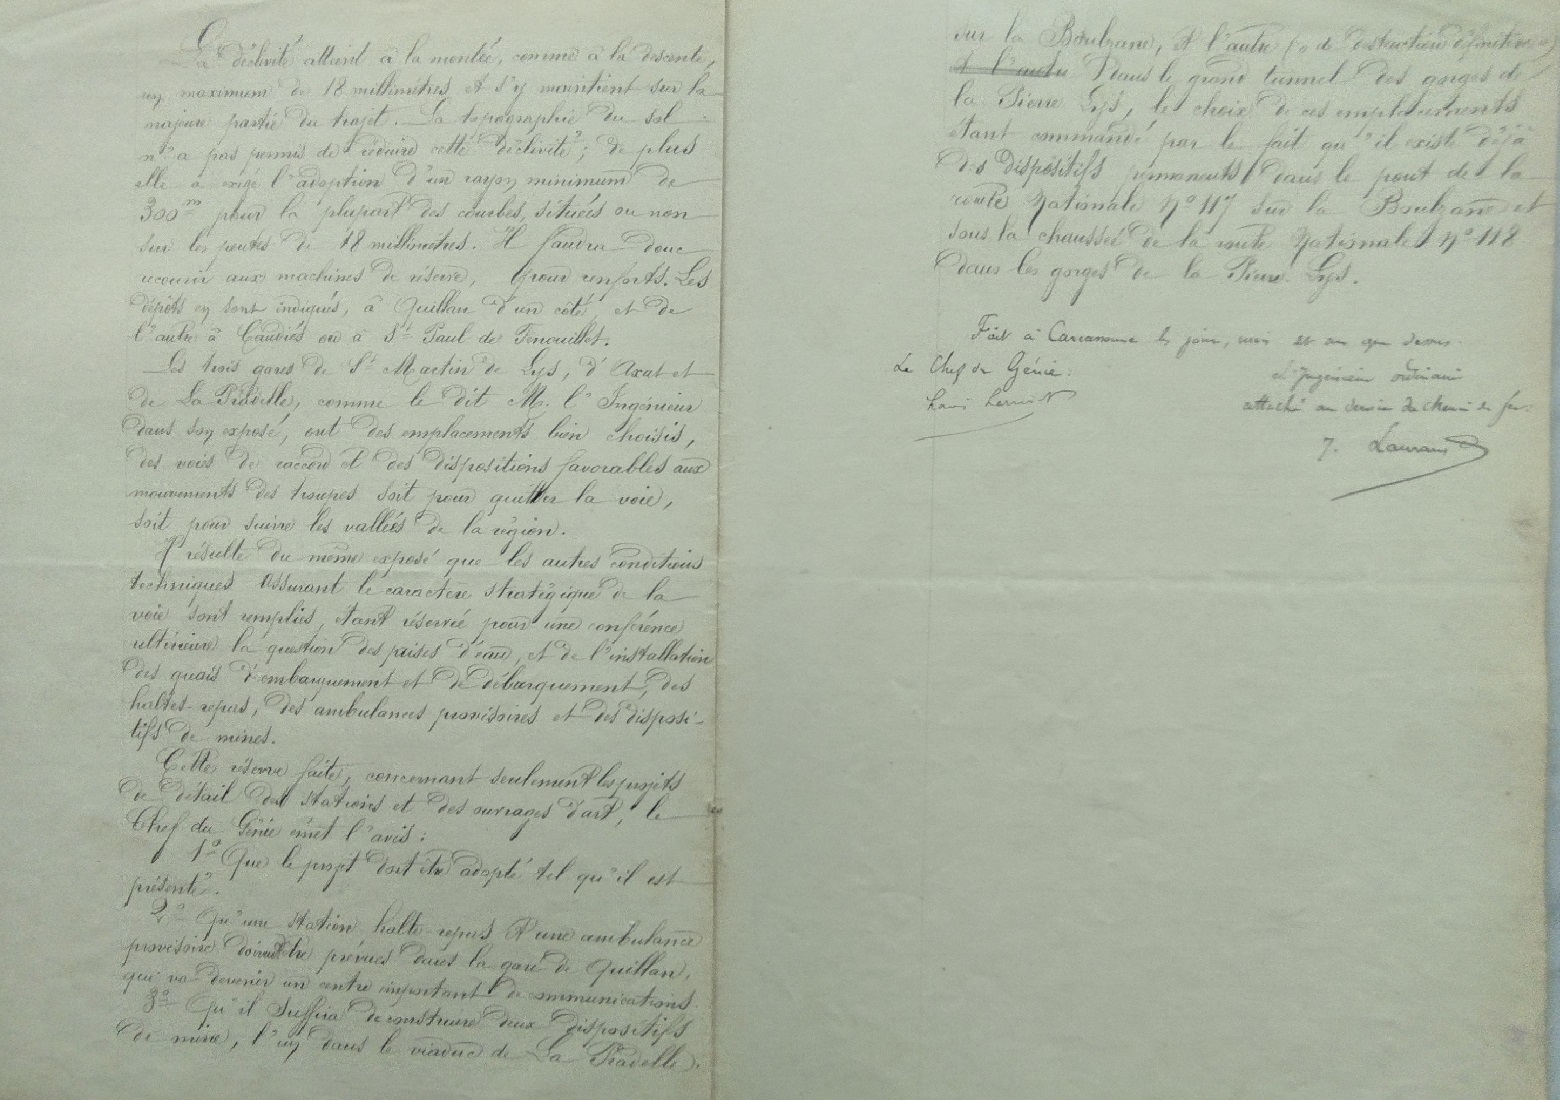 La déclivité atteint à la montée, comme à la descente,
un maximum de 18 millimètres et s'y maintient sur la
majeure partie du trajet. La topographie du sol
n'a pas permis de réduire cette déclivité; de plus
elle a exigé l'adoption d'un rayon minimum de
300m pour la plupart des courbes, situées ou non
sur les pentes de 18 millimètres. Il faudra donc
recourir aux machines de réserve, pour renforts. Les
dépôts en sont indiqués, à Quillan d'un côté, et de
l'autre à Caudiès ou à St Paul de Fenouillet.
Les trois gares de St Martin de Lys, d'Axat et
de La Pradelle, comme le dit M. l'Ingénieur
dans son exposé, ont des emplacements bien choisis,
des voies de raccord et des dispositions favorables aux
mouvements des troupes soit pour quitter la voie,
soit pour suivre les vallées de la région.
Il résulte du même exposé que les autres conditions
techniques assurant le caractère stratégique de la
voie sont remplies, étant réservée pour une conférence
ultérieure la question des prises d'eau, et de l'installation
des quais d'embarquement et de débarquement, des
haltes-repas, des ambulances provisoires et des disposi-
tifs de mines.
Cette réserve faite, concernant seulement les projets
de détail des stations et des ouvrages d'art, le
Chef du Génie émet l'avis:
1° Que le projet doit être adopté tel qu'il est
présenté.
2° Qu'une station halte-repas et une ambulance
provisoire doivent être prévues dans la gare de Quillan,
qui va devenir un centre important de communications.
3° Qu'il suffira de construire deux dispositifs
de mine, l'un dans le viaduc de La Pradelle,
sur la Boulzane, et l'autre (o de destruction définitive)
et l'autre dans le grand tunnel des gorges de
la Pierre Lys, le choix de ces emplacements
étant commandé par le fait qu'il existe déjà
des dispositifs permanents dans le pont de la
route Nationale N° 117 sur la Boulzane et
sous la chaussée de la route Nationale N° 118
dans les gorges de la Pierre Lys.
Fait à Carcassonne les jour, mois et an que dessus.
Le Chef du Génie:
L'Ingénieur ordinaire
attaché au service du chemin de fer:
J. Laurans